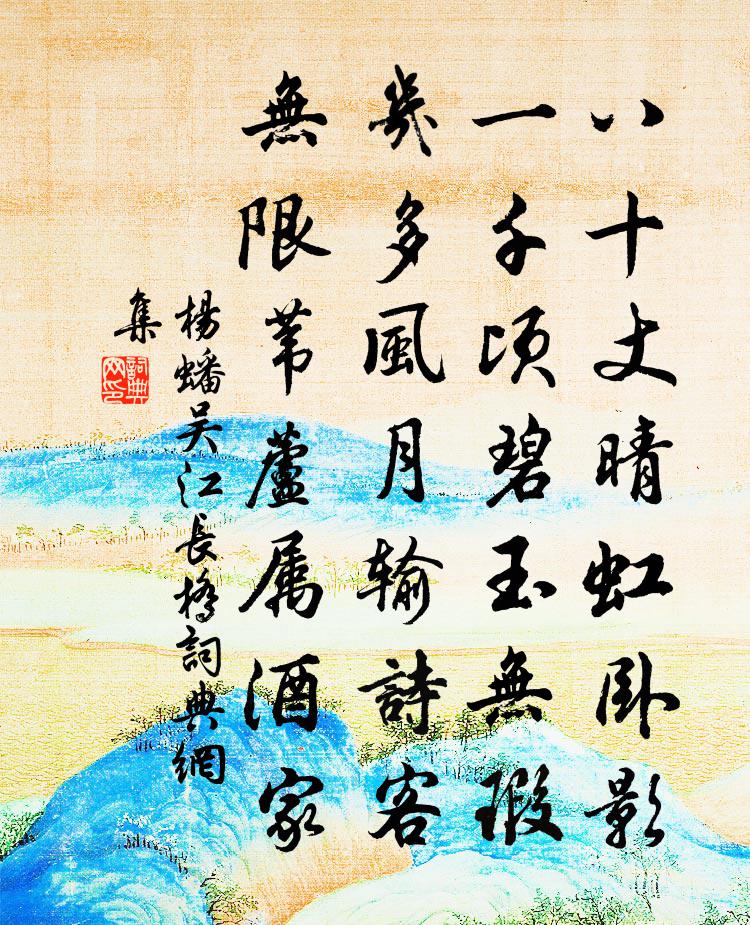 八十丈晴虹卧影
一千頃碧玉無瑕
幾多風月输詩客
無限苇蘆属酒家
楊蟠吴江長橋詞典網
集
詞典
网印